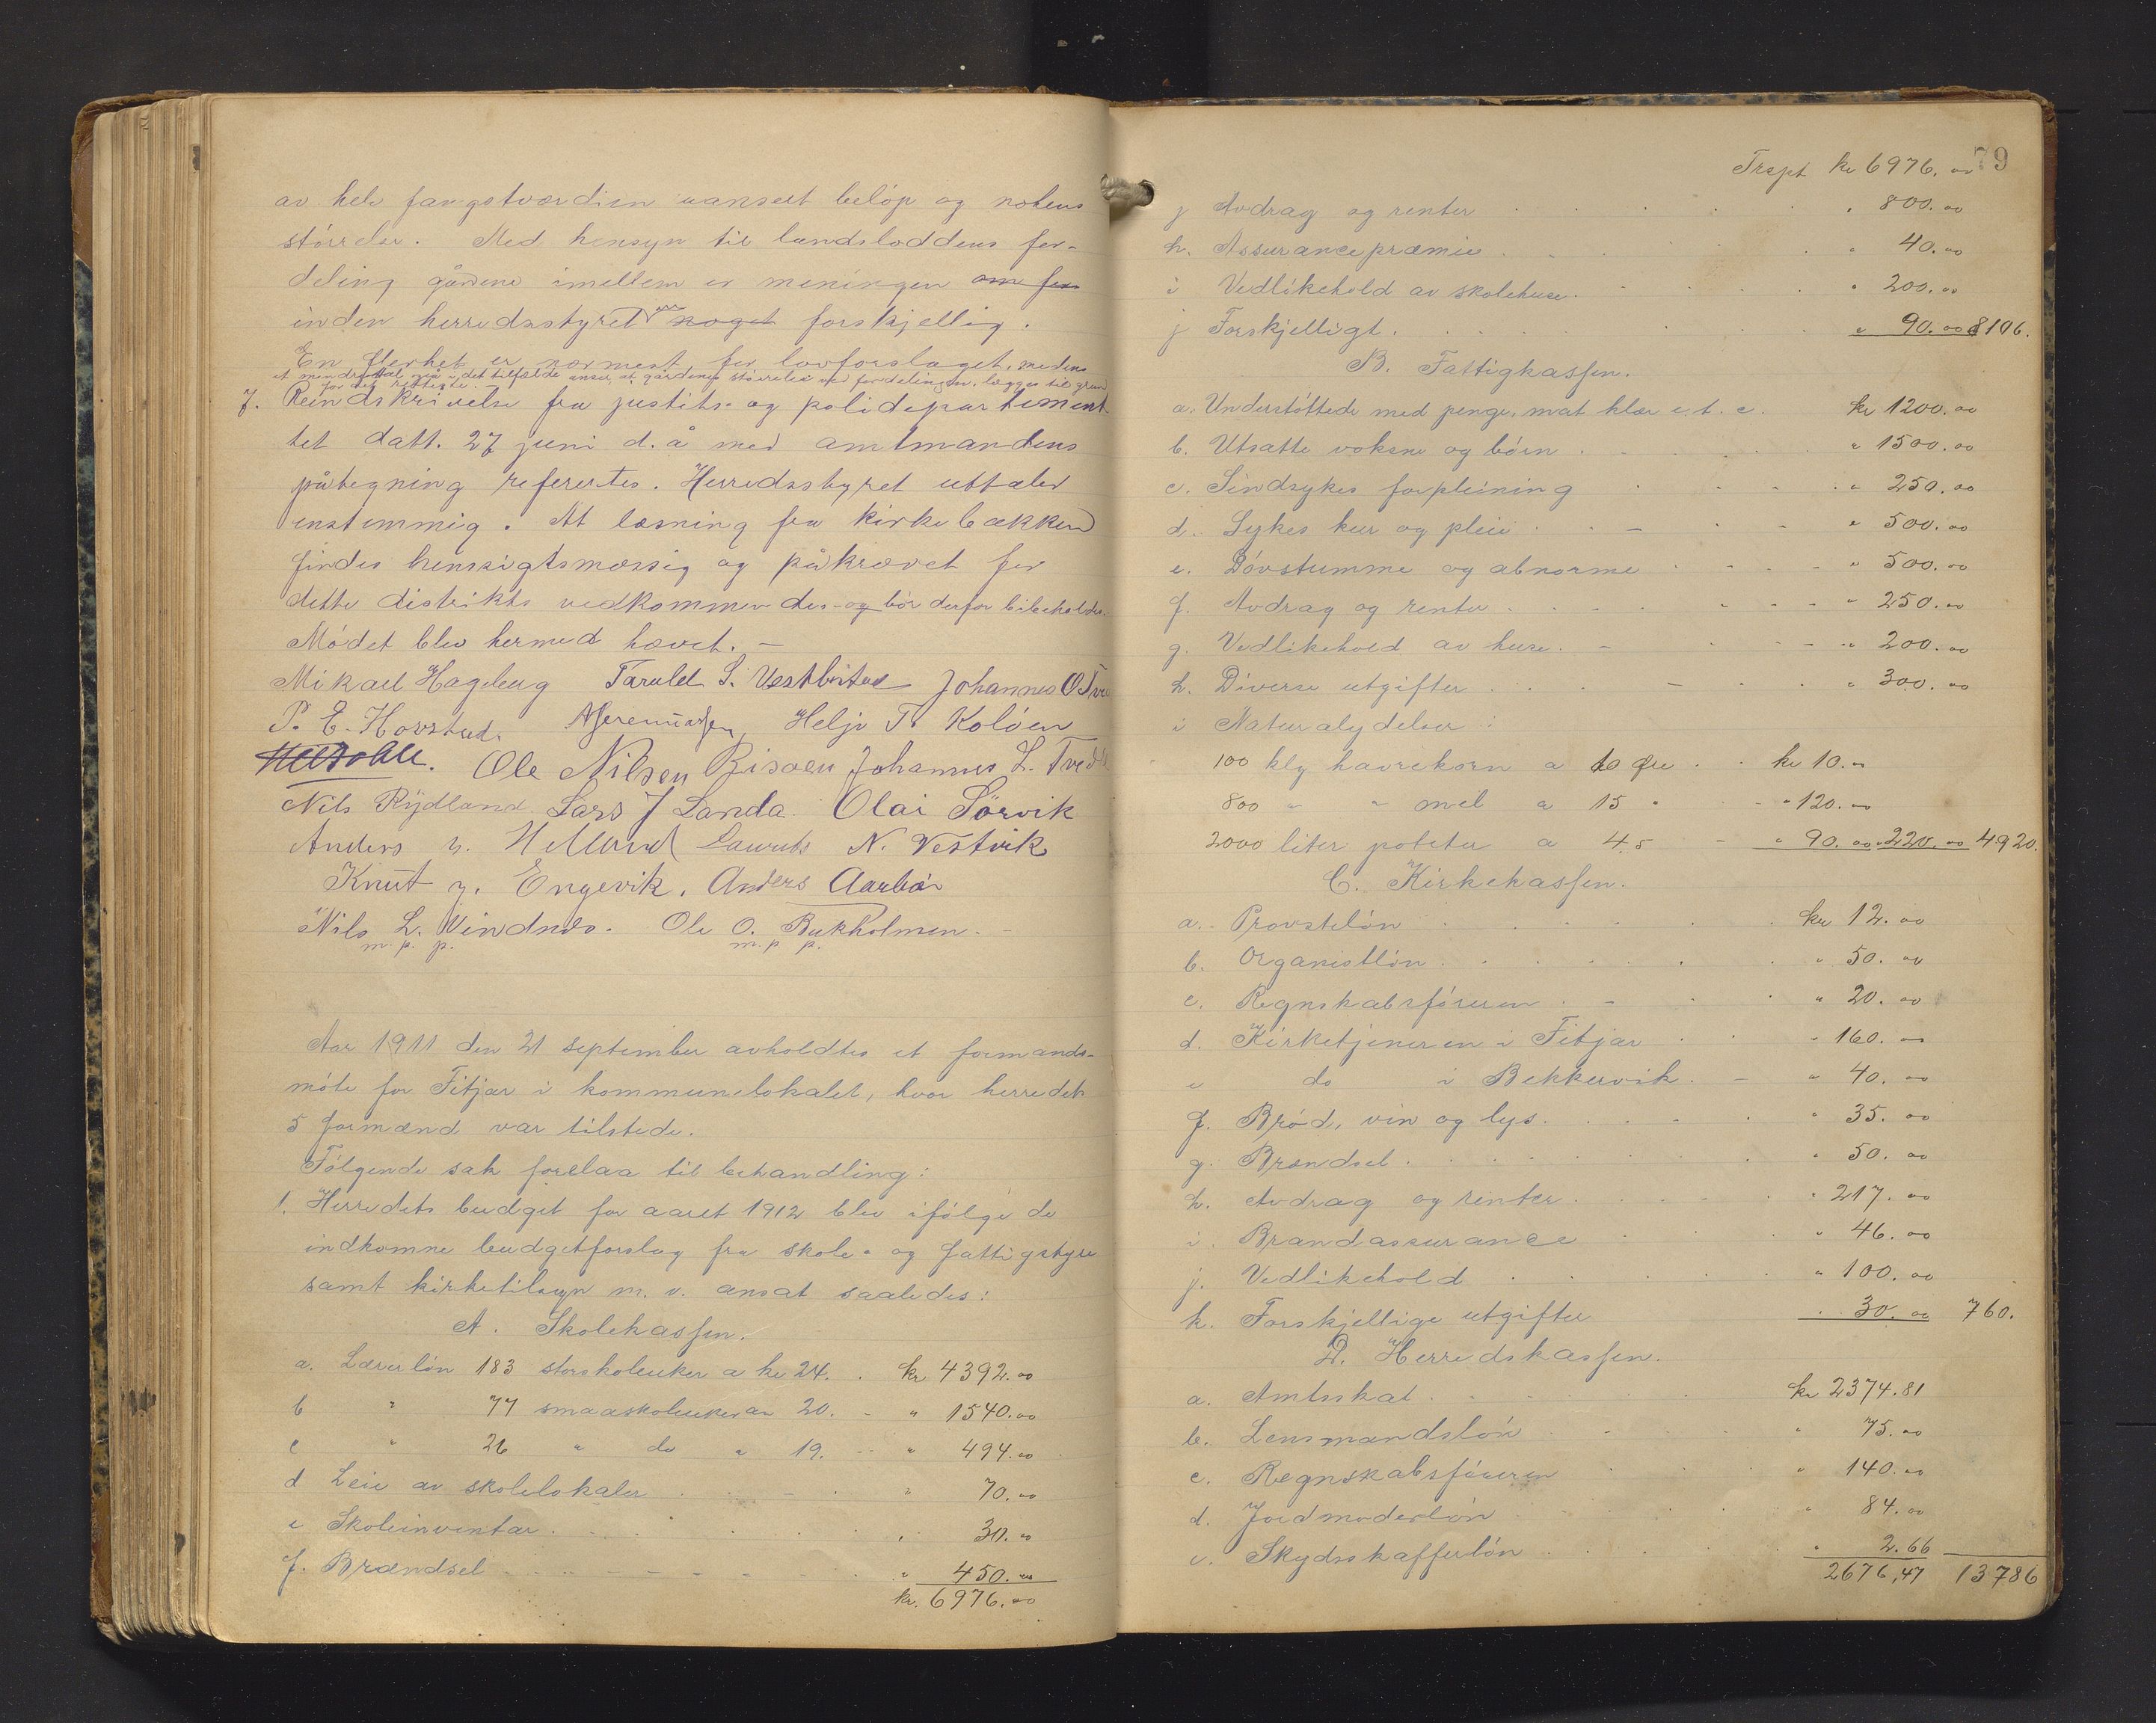 av hele fangstværdien uanseet beløp og notens
størrelse. Med hensyn til landsloddens for-
deling gårdene imellem er meningen om for
inden herredsstyret noget forskjellig.
En flerhet er nærmest for lovforslaget, medens
et mindretal paa det tilfælde anser, at gårdenes størrelse ved fordelingen lægges til grund
for det retteste.
7. Reindskrivelse fra justits- og politidepartement
tet datt. 27 juni d. å med amtmandens
påtegning refereertes. Herredsstyret uttaler
enstemmig. At læsning fra kirkebakken
findes hensigtsmæssig og påkrævet for
dette distrikts vedkommendes og bør derfor bibeholdes.
Mødet blev hermed hævet. —
Mikael Hageberg Tarald S. Vestbøstad Johannes O Tve
P. E. Hovstad. Helje T. Koløen
Ole Nilsen Risøen Johannes L. Tved
Nils Rydland Lars J Landa Olai Sørvik
Anders n. Helland Lauruts N. Vestvik
Knut J. Engevik. Anders Aarbø
Nils L. Vindnes. Ole O. Bukholmen. -
m. p. p. m. p. p.
Aar 1911 den 21 september avholdtes et formands-
møte for Fitjar i kommunelokalet, hvor herredets
5 formænd var tilstede.
Følgende sak forelaa til behandling:
1. Herredets budget for aaret 1912 blev ifølge de
indkomne budgetforslag fra skole- og fattigstyre
samt kirketilsyn m. v. ansat saaledes:
A. Skolekassen.
a. Lærerløn 183 storskoleuker a kr 24. . kr 4392.00
b " 77 smaaskoleuker a 20. - " 1540.00
c " 26 " do " 19. -- " 494.00
d Leie av skolelokaler . . - . " 70.00
e Skoleinventar . . . . . . " 30.00
f. Brændsel . . - - - - - . " 450.00
kr. 6976.00
79
Trspt kr 6976.00
g Avdrag og renter . . . . . " 800.00
h. Assurancepræmie . . . . " 40.00
i Vedlikehold av skolehuse. . . . " 200.00
j Forskjelligt. . . . . . " 90.00 8106.
B. Fattigkassen.
a. Understøttede med penge, mat klær e. t. c. kr 1200.00
b. Utsatte voksne og børn . . . . " 1500.00
c. Sindsykes forpleining . . . . " 250.00
d. Sykes kur og pleie . . - . - " 500.00
e. Døvstumme og abnorme . . . . - " 500.00
f. Avdrag og renter . . . . . - - - " 250.00
g. Vedlikehold av huse. - . . - - - " 200.00
h. Diverse utgifter . . . . - . - . " 300.00
i Naturalydelser :
100 klg havrekorn a 10 øre . . kr 10.00
800 " " mel a 15 " . - " 120.00
2000 liter poteter a 4.5 - " 90.00 " 220.00 4920.
C. Kirkekassen.
a. Provsteløn . . . . . . kr 12.00
b. Organistløn . . . . . . " 50.00
c. Regnskabsføreren . - . . " 20.00
d. Kirketjeneren i Fitjar . . " 160.00
e do i Bekkervik. - " 40.00
f. Brød, vin og lys. . . . . " 35.00
g. Brendsel . . . . . . . " 50.00
h. Avdrag og renter . . . . . " 217.00
i. Brandassurance . . . " 46.00
j. Vedlikehold . . . . . " 100.00
k. Forskjellige utgifter " 30.00 760.
D. Herredskassen.
a. Amtsskat . . . . . kr 2374.81
b. Lensmandsløn . . . . " 75.00
c. Regnskabsføreren . . . " 140.00
d. Jordmoderløn . . . . " 84.00
e. Skydsskafferløn . . . . " 2.66
2676,47 13786